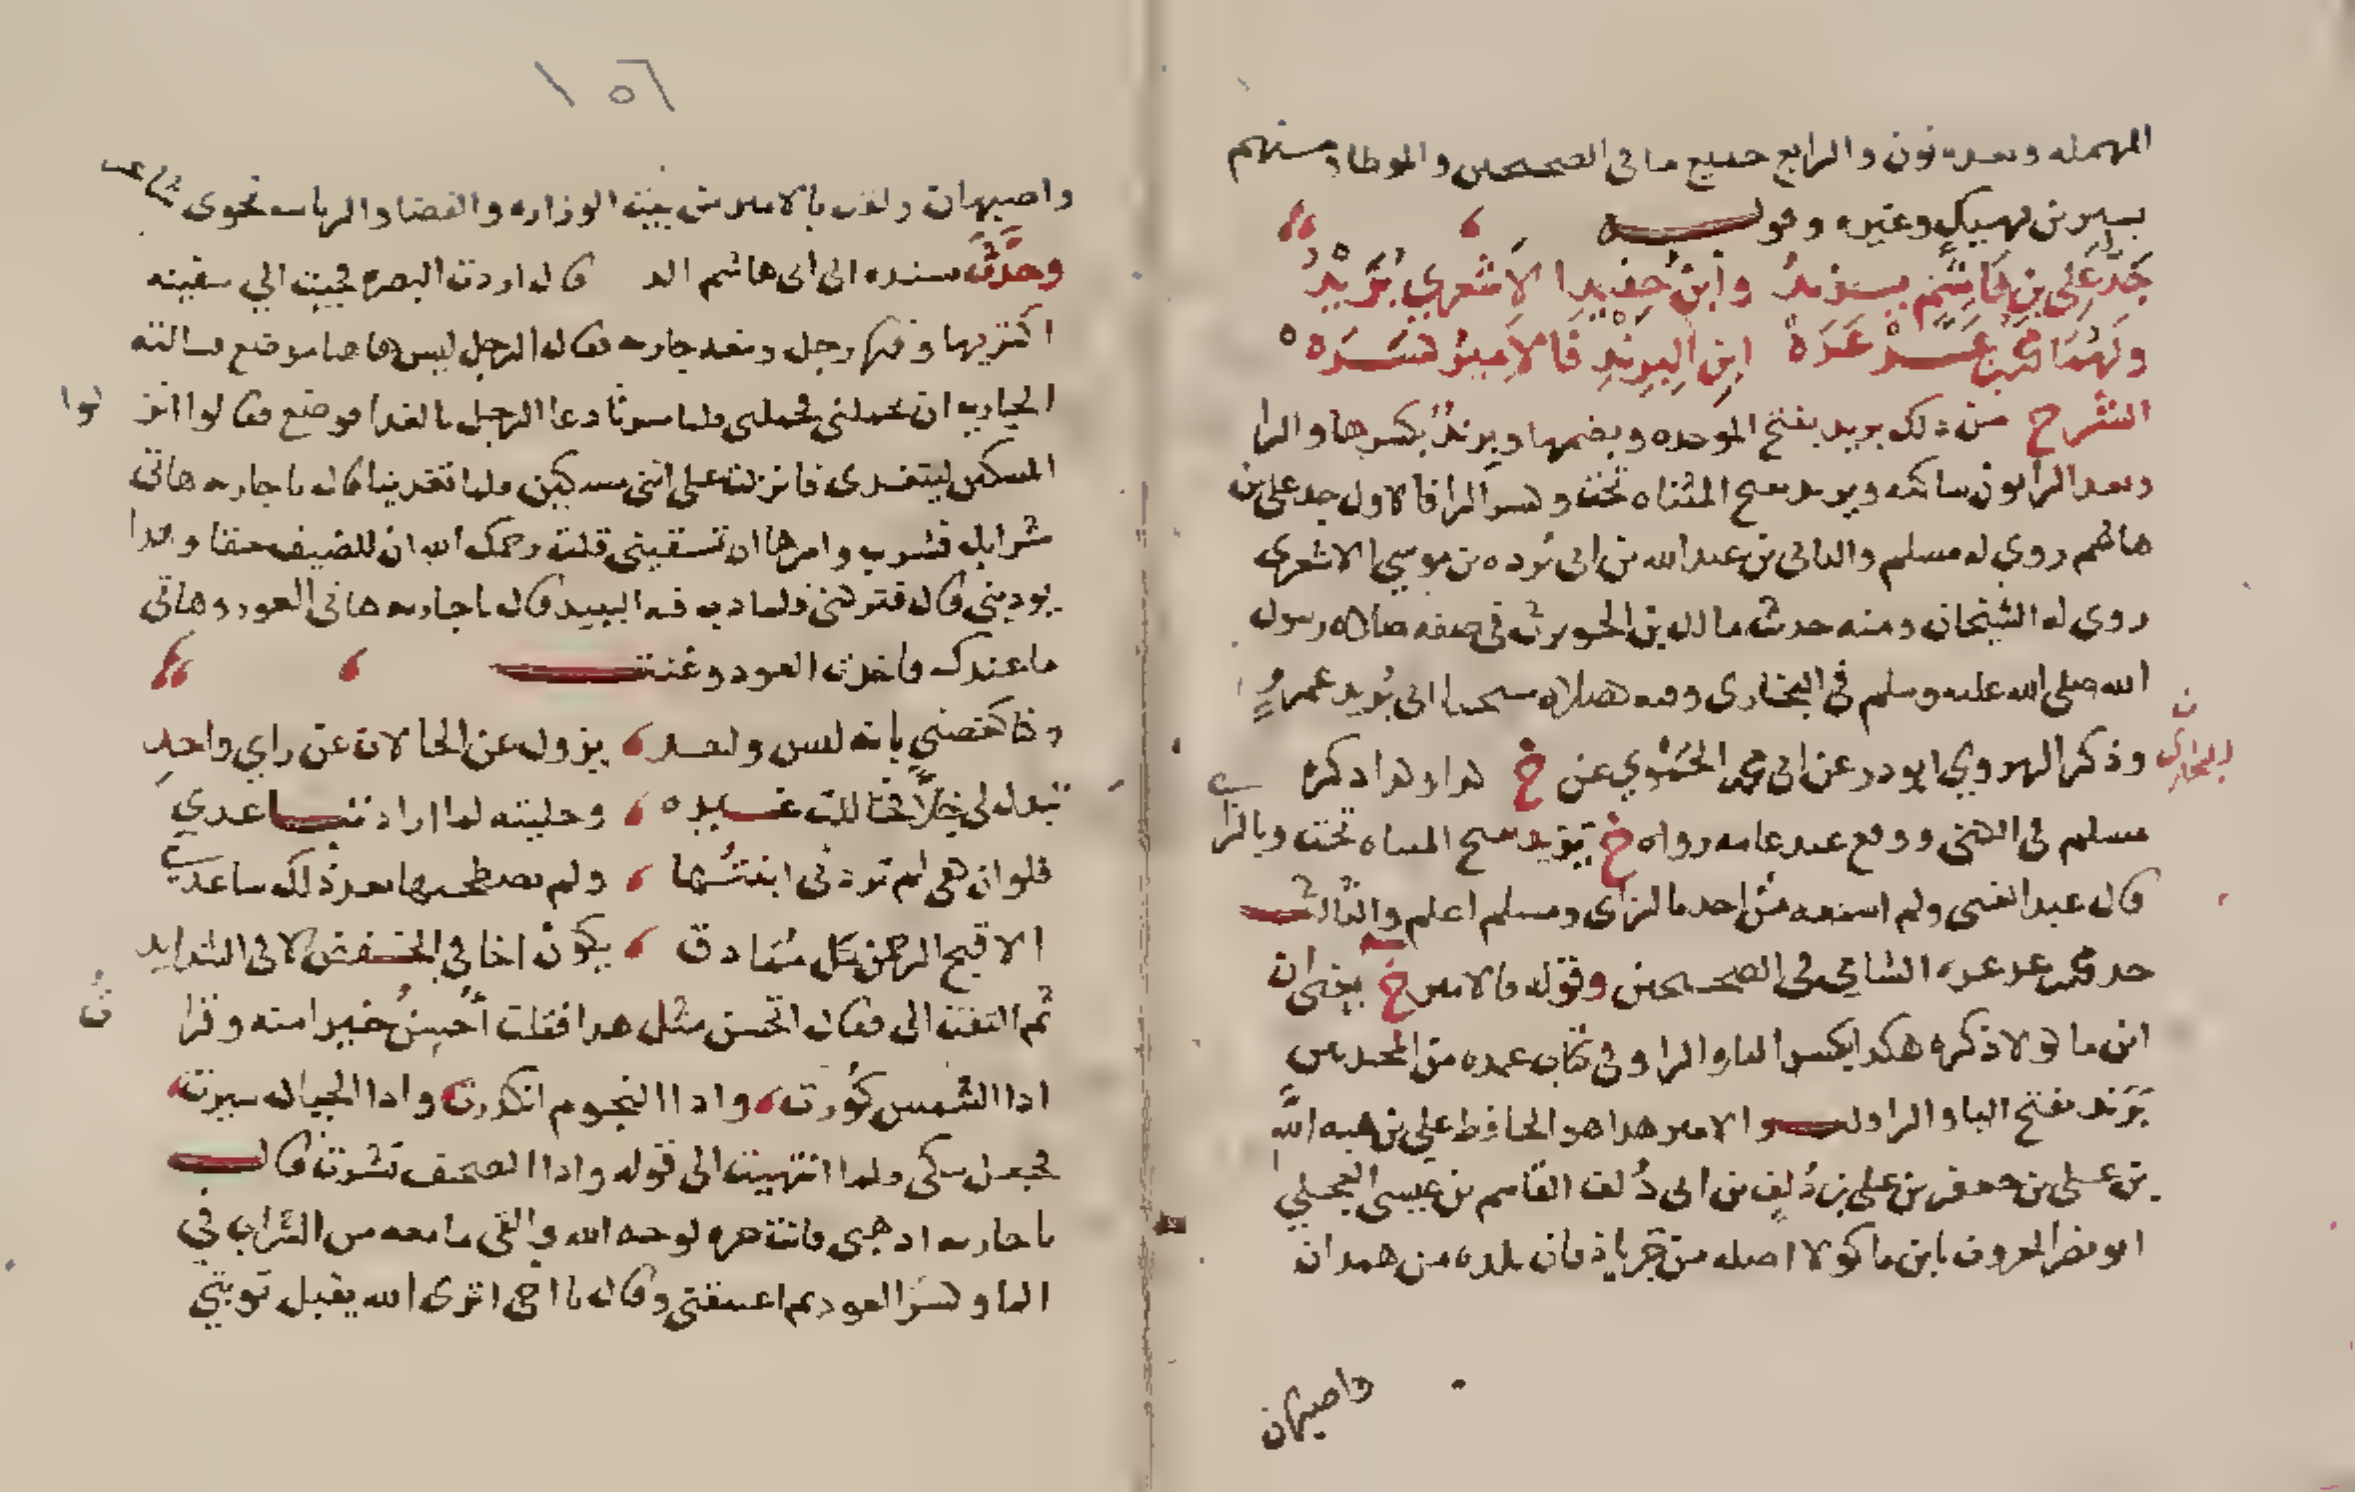 المهمله وبعده نون والرابع جميع ما في الصحيحين والموطا منهم
بشير بن نهيك وغيره وقوله
جد علي بن هاشم بريد وابن حفيد الاشعري بريد
ولهما محمد بن عرعره ابن البرند فالامير كسره
الشرح من ذلك بريد بفتح الموحده وبضمها وبرند بكسرها والرا
وبعد الرا نون ساكنه ويزيد بفتح المثناه تحت وكسر الزا فالاول جد علي بن
هاشم روي له مسلم والثاني بن عبد الله بن ابي برده بن موسي الاشعري
روي له الشيخان ومنه حديث مالك بن الحويرث في صفه صلاه رسول
الله صلى الله عليه وسلم في البخاري وفيه صلاه شيخنا ابي بريد عمرو
وذكر الهروي ابو ذر عن ابي محمد الحموي عن خ هذا وكذا ذكره
ن البخاري
مسلم في الكنى ووقع عند عامه رواه خ يزيد بفتح المثناه تحت وبالزاي
قال عبد الغني ولم اسمعه من احد بالزاي ومسلم اعلم والثالث
جد محمد بن عرعره الشامي في الصحيحين وقوله فالامير خ يعني ان
ابن ماكولا ذكره هكذا بكسر البا والرا وفي كتاب عمده من المحدثين
برند بفتح البا والرا والامير هذا هو الحافظ علي بن هبه الله
بن علي بن جعفر بن علي بن دلف بن ابي دلف القاسم بن عيسى العجلي
ابو نصر المعروف بابن ماكولا اصله من جرباذقان بلده من همدان
واصبهان
١٥٦
واصبهان ولقب بالامير من بيت الوزاره والقضا والرياسه نحوي شاعر
وحدث بسنده الى ابي هاشم قال اردت البصره فجيت الي سفينه
اكتريها وفيها رجل ومعه جاريه فقال الرجل ليس هاهنا موضع فسالته
الجاريه ان يحملني فحملني فلما سرنا دعا الرجل بالغدا فوضع فقالوا انزلوا
المسكين ليتغدى فانزلت على انني مسكين فلما تغدينا قال يا جاريه هاتي
شرابك فشرب وامرها ان تسقيني قلت رحمك الله ان للضيف حقا وهذا
يوذيني قال فتركني فلما دب فيه النبيذ قال يا جاريه هاتي العود وهاتي
ما عندك فاخذت العود وغنت
وكنا كغصني بانه ليس واحد يزول عن الحالات عن راي واحد
تبدل لي خلا فخاللت غيره وخليته لما اراد تباعدي
فلو ان كفي لم تردني ابنتها ولم يصطحبها بعد ذلك ساعدي
الا قبح الرحمن كل مماذق يكون اخا في الخفض لا في الشدايد
ثم التفت الى فقال اتحسن مثل هذا فقلت أحسن خيرا منه وقرات
اذا الشمس كورت واذا النجوم انكدرت واذا الجبال سيرت
فجعل يبكي فلما انتهيت الى قوله واذا الصحف نشرت قال
يا جاريه اذهبي فانت حره لوجه الله والقى ما معه من الشراب في
الما وكسر العود ثم اعتنقني وقال يا اخي اترى الله يقبل توبتي